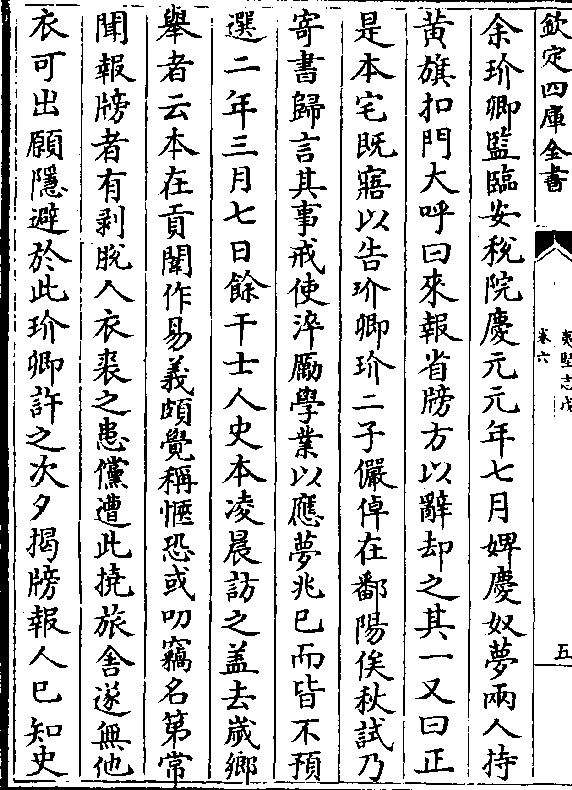 欽定四庫全書
夷堅志戊
卷六
五
余玠卿監臨安稅院慶元元年七月婢慶奴夢兩人持
黃旗扣門大呼曰來報省牓方以辭却之其一又曰正
是本宅既寤以告玠卿玠二子儼倬在鄱陽俟秋試乃
寄書歸言其事戒使淬勵學業以應夢兆已而皆不預
選二年三月七日餘干士人史本凌晨訪之葢去嵗鄉
舉者云本在貢闈作易義頗覺稱愜恐或叨竊名第常
聞報牓者有剥脫人衣裘之患儻遭此撓旅舍遂無他
衣可出願隱避於此玠卿許之次夕揭牓報人已知史